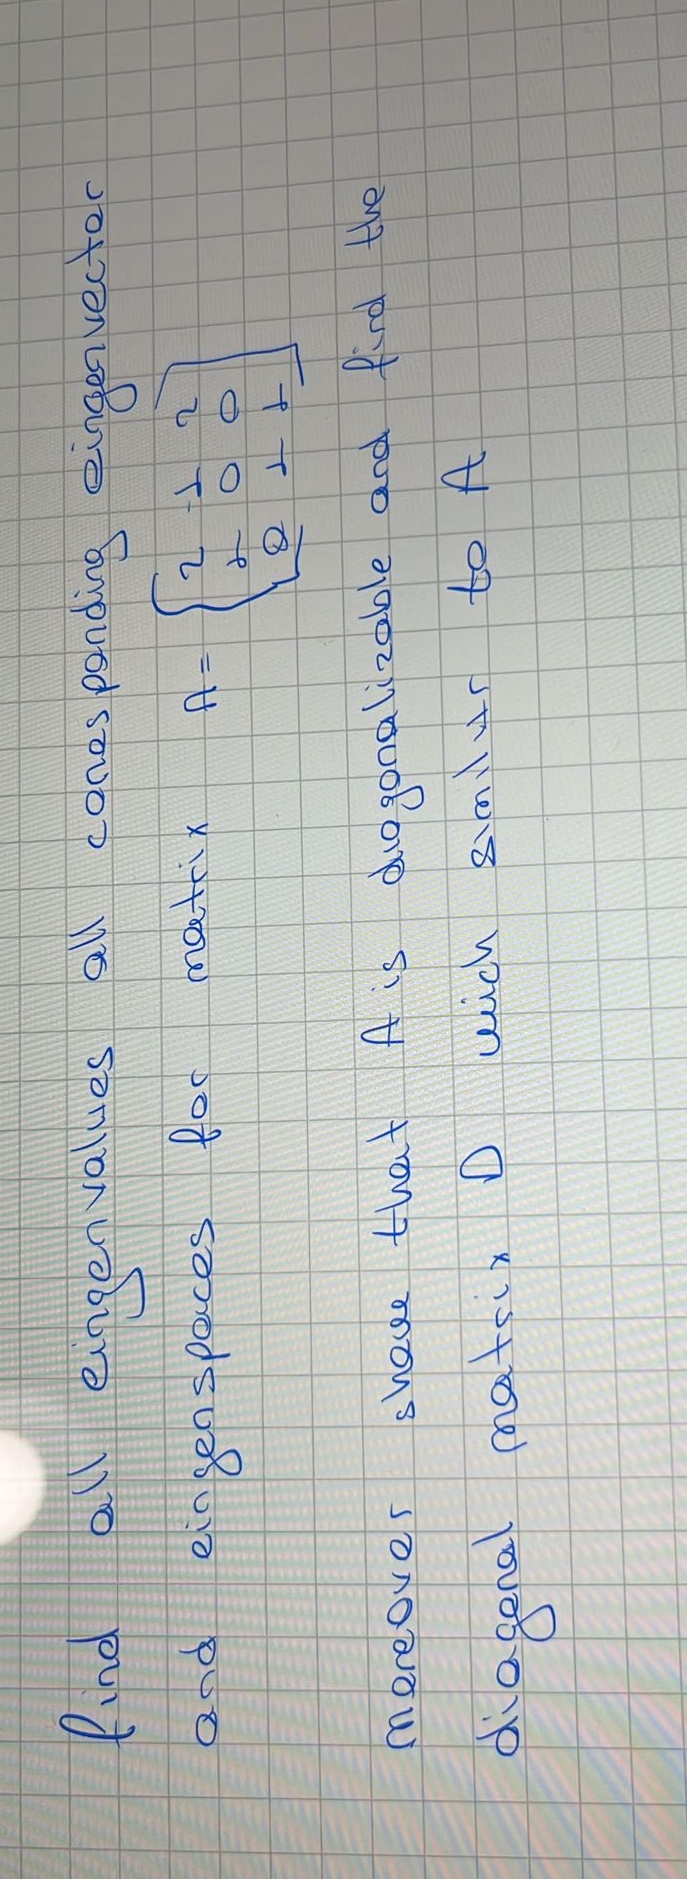 find all eingenvalues all conesponding eingenvector
and eingenspaces for matrix A = [2 -1 2
1 0 0
0 1 1]
moreover show that A is diagonalizable and find the
diagonal matrix D wich similar to A